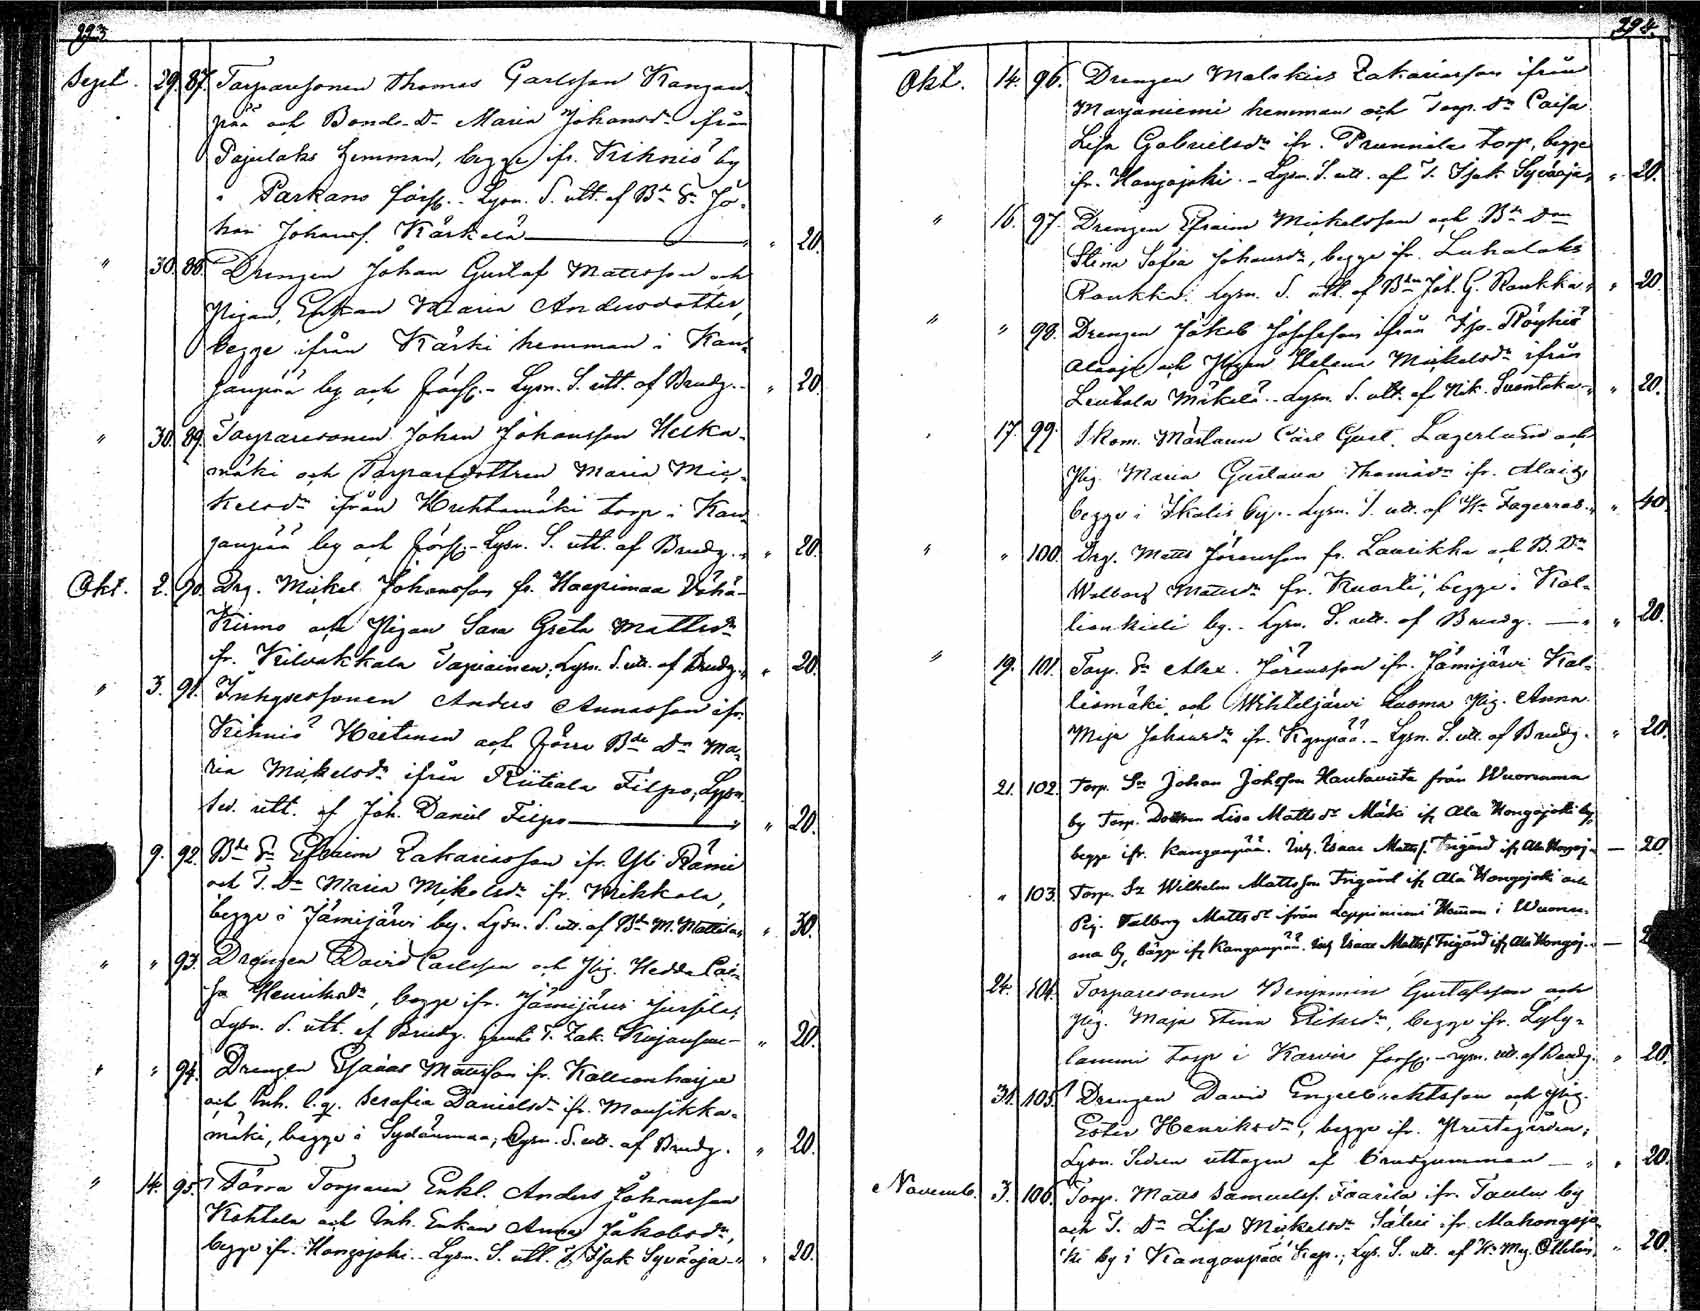 223
Sept. 29. 87. Torparesonen Thomas Carlsson Kangan-
pää och Bonde-Dr Maria Johansdr ifrån
Pajulaks hemman, begge ifr. Kihniö by
i Parkano förs. - Lysn. S. utt. af Bde Sn Jo-
han Johansf. Kärkelä " " 20.
" 30. 88. Drengen Johan Gustaf Mattsson och
Pigan, Enkan Maria Andersdotter,
begge ifrån Kärki hemman i Kan-
kanpää by och förs. - Lysn. S. utt. af Brudg. - " 20
" 30. 89. Torparesonen Johan Johansson Helka-
mäki och Torparedottren Maria Mic-
kelsdr ifrån Huhtamäki torp i Kan-
kanpää by och förs. - Lysn. S. utt. af Brudg. " " 20.
Okt. 2. 90. Drg. Mickel Johansson fr. Haapimaa Vähä-
Kirmo och Pigan Sara Greta Mattsdr
fr. Kilvakkala Tapiainen; Lysn. S. utt. af Brudg. " " 20.
" 3. 91. Inhysessonen Anders Annasson ifr.
Kihniö Hietanen och förra Bde Dr Ma-
ria Mickelsdr ifrån Riitiala Filpo; Lysn.
Sed. utt. af Joh. Daniel Filpo " " 20.
9. 92. Bde Sn Efraim Zakariasson ifr. Yli Rämi
och T. Dr Maria Mikelsdr ifr. Mikkola,
begge i Jämijärvi by. Lysn. S. utt. af Bde M. Mattila " " 30.
" " 93. Drengen David Carlsson och Pig. Hedda Cai-
sa Henriksdr, begge ifr. Jämijärvi
Lysn. S. utt. af Brudg. T. Zak. " 20.
" " 94. Drengen Esaias Mattsson ifr. Kallionharju
och Inh. Serafia Danielsdr ifr. Mansikka-
mäki, begge i Sydänmaa; Lysn. S. utt. af Brudg. " 20.
" 14. 95. Förra Torparen Enkl. Anders Johansson
Kohtala och Inh. Enkan Anna Jakobsdr,
begge ifr. Hongojoki. - Lysn. S. utt. T. Isak Syväoja " " 20.
224.
Okt. 14. 96. Drengen Malakias Zakariasson ifrån
Marjaniemi hemman och Torp. Dr Caisa
Lisa Gabrielsdr ifr. Prunnila torp, begge
ifr. Hongojoki. - Lysn. S. utt. af T. Isak Syväoja " " 20.
" 16. 97. Drengen Efraim Mickelsson och Bde Drn
Stina Sofia Johansdr, begge ifr. Luhalaks
Raukka. Lysn. S. utt. af Bden Joh. G. Raukka " " 20.
" " 98. Drengen Jakob Josefsson ifrån Röyhiö
Alaoja och Pigan Helena Mickelsdr ifrån
Leukala Mäkelä. - Lysn. S. utt. af Nik. " " 20.
17. 99. Skom. Mästaren Carl Gust. Lagerlund och
Pig. Maria Gustava Thomasdr ifr.
begge i Ikalis by. - Lysn. S. utt. af Hr Fagerroos " " 40.
" " 100. Drg. Matts Göransson fr. Laurikka och B. Dr
Walborg Mattsdr fr. Kuosti, begge i Kal-
lionkieli by. - Lysn. S. utt. af Brudg. — " " 20.
" 19. 101. Torp. Sn Alex. Göransson ifr. Jämijärvi Kal-
liomäki och Wihteljärvi Luoma Pig. Anna
Maja Johansdr ifr. Kynpää. - Lysn. S. utt. af Brudg. " 20.
21. 102. Torp. Sn Johan Johsson Hautaviita från Wuorenma
by Torp. Dottren Lisa Mattsdr Mäki ifr Ala Hongojoki by,
begge ifr. Kangaspää. Isaac Mattss. Frigård ifr Ala Hongoj. — 20.
" 103. Torp. Sn Wilhelm Mattsson Frigård ifr Ala Hongojoki och
Pig. Valborg Mattsdr ifrån Leppiniemi Heman i Wuoren-
maa by, begge ifr Kangaspää. Isaac Mattss Frigård ifr Ala Hongoj. — 2
24. 104. Torparesonen Benjamin Gustafsson och
Pig. Maja Stina Eriksdr, begge ifr. Lyly-
lammi torp i Karvia förs. - Lysn. utt. af Brudg. " 20.
31. 105. Drengen David Engelbrektsson och Pig.
Ester Henriksdr, begge ifr. Prestgården;
Lysn. Sedlen uttagen af brudgumman — " " 20.
Novemb. 3. 106. Torp. Matts Samuelsf. ifr. by
och T. Dr Lisa Mickelsdr Säleri ifr. Alahongojo-
ki by i Kangaspää Kap.; Lys. S. utt. af Hr Mag. " 20.